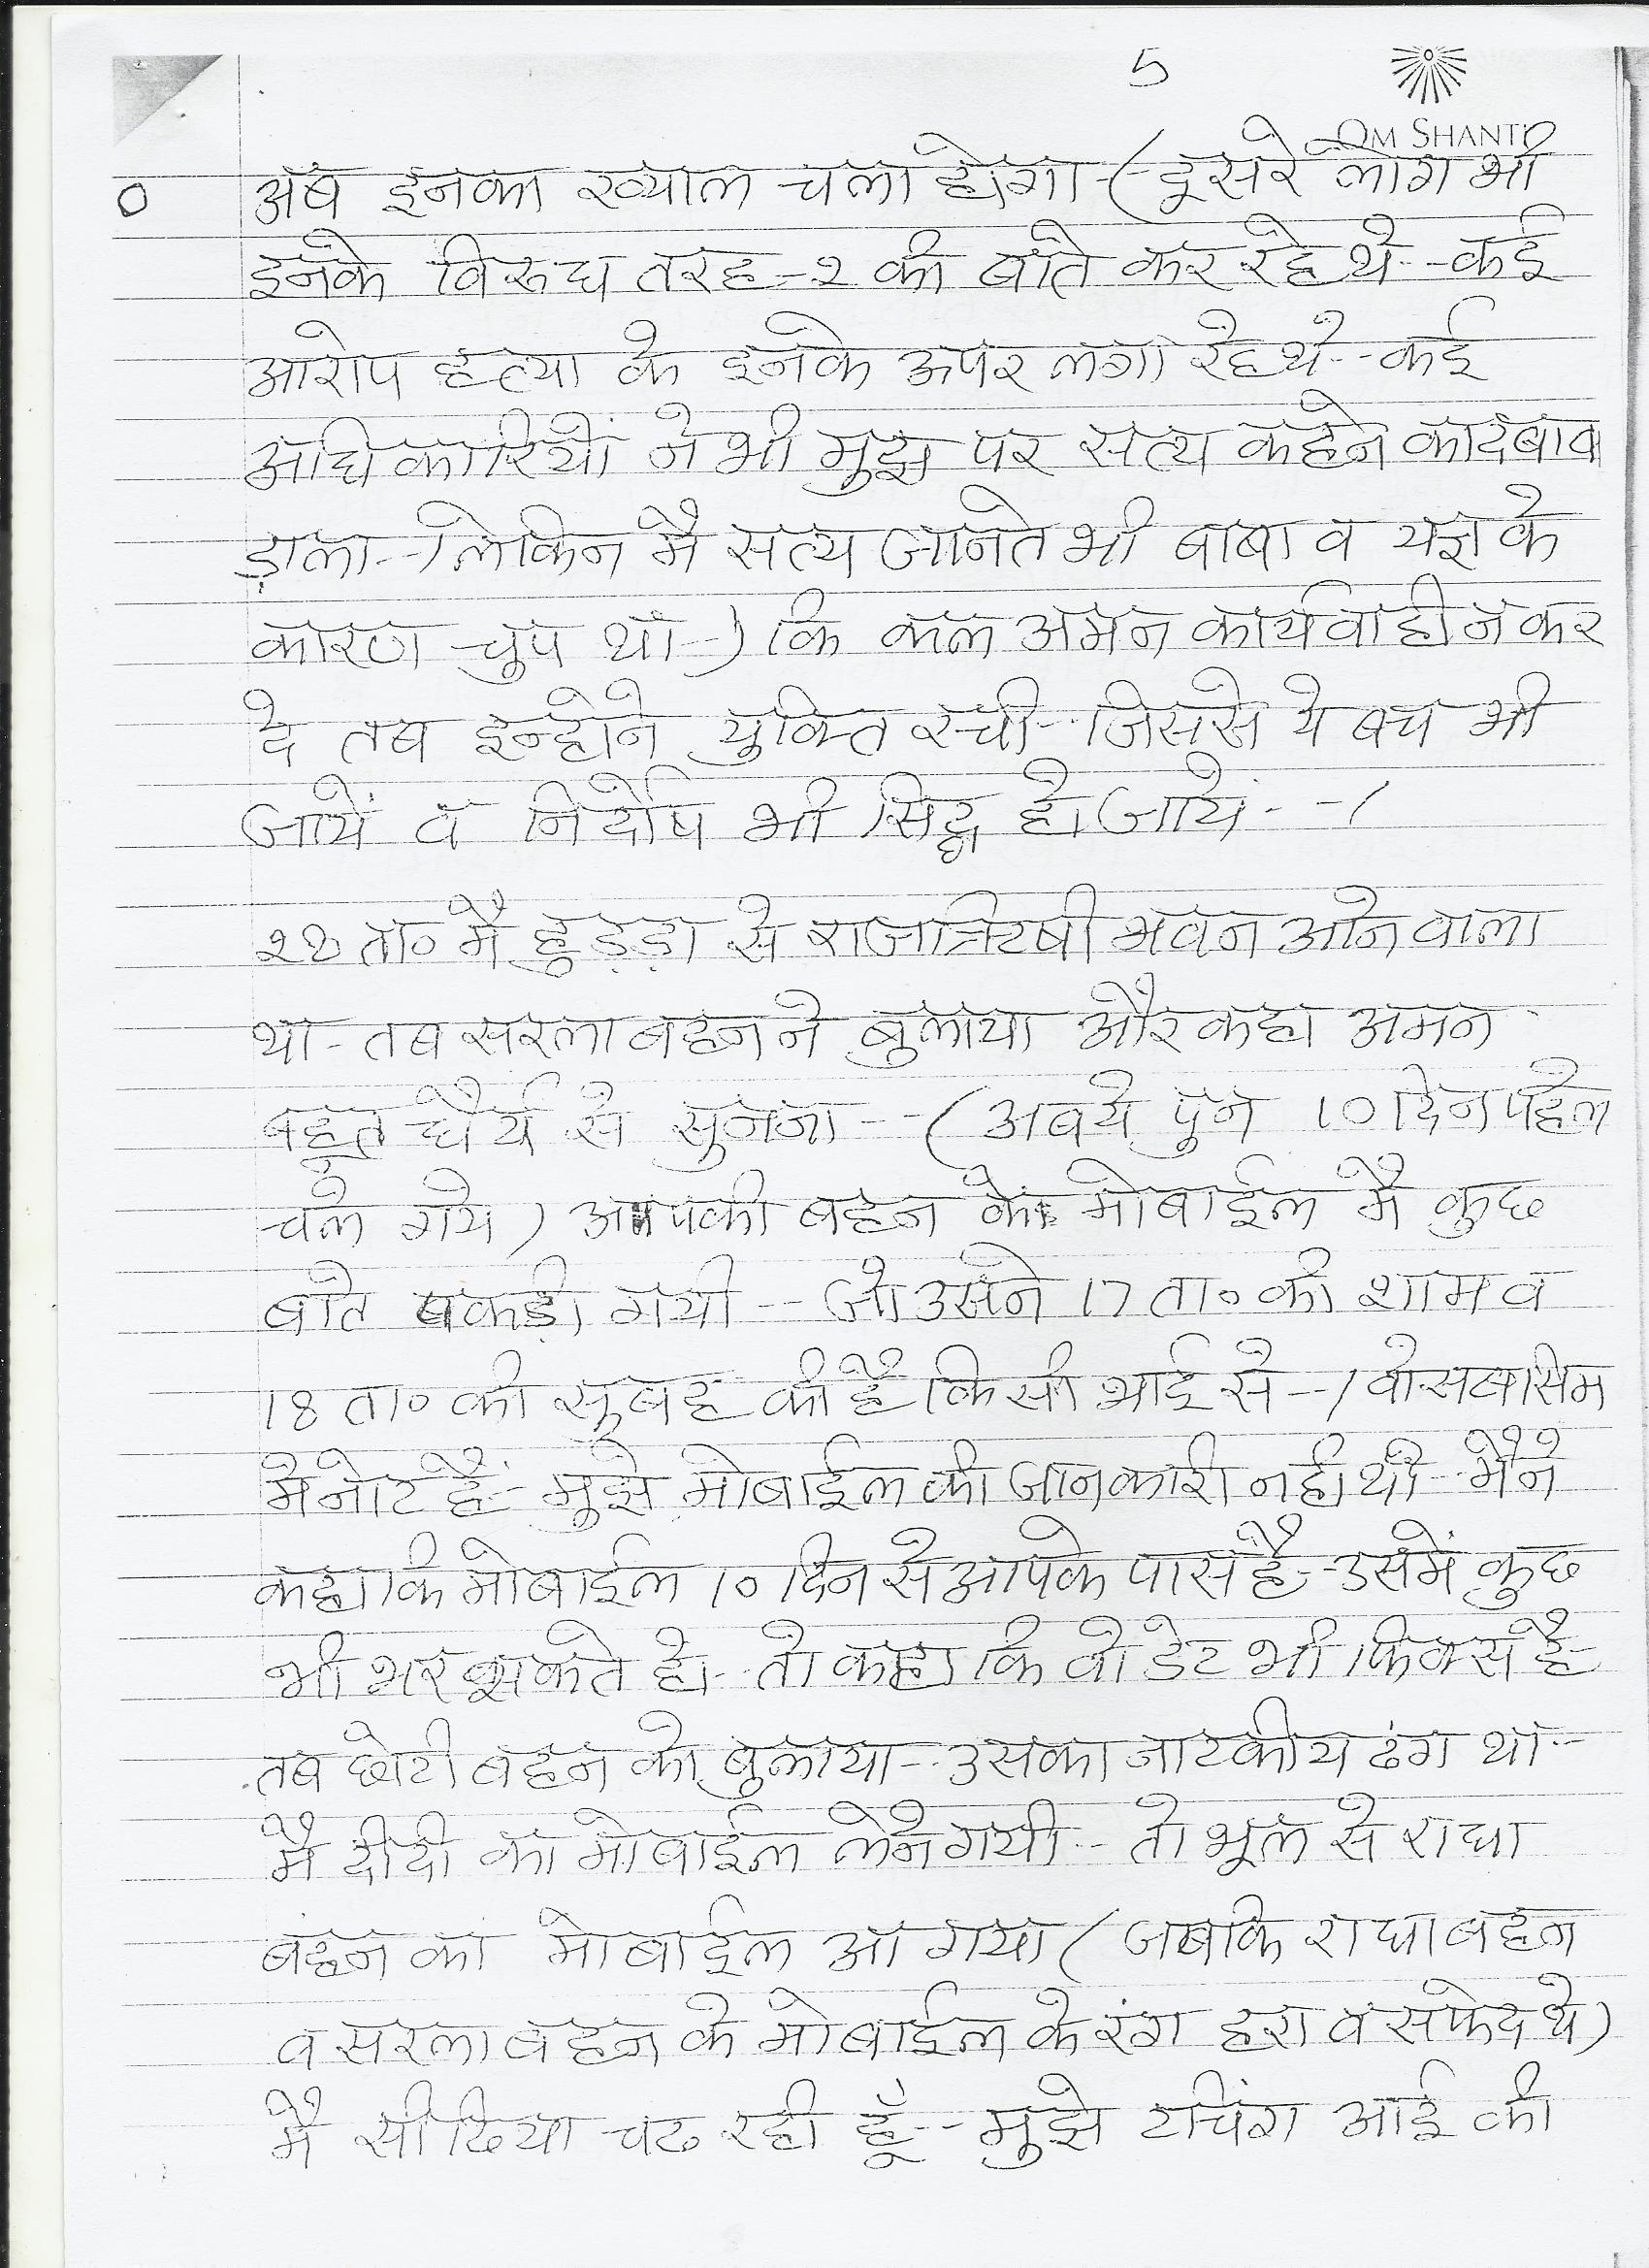 5
OM SHANTI
अब इनका ख्याल चला होगा (दूसरे लोग भी
इनके विरुध तरह-२ की बाते कर रहे थे--कई
आरोप हत्या के इनके ऊपर लगा रहे थे--कई
अधिकारियों ने भी मुझ पर सत्य कहने का दबाव
ड़ाला--।लेकिन मै सत्य जानते भी बाबा व यज्ञ के
कारण चुप था-) कि कल अमन कार्यवाही न कर
दे तब इन्होने युक्ति रची--जिससे ये बच भी
जायें व निर्दोष भी सिद्ध हो जाये--।
ता० मै हुड़ड़ा से राजऋिषी भवन आने वाला
था-तब सरला बहन ने बुलाया और कहा अमन
बहुत धैर्य से सुनना--(अब ये पुन 10 दिन पहले
चले गये) आपकी बहन के मोबाईल मै कुछ
बाते पकड़ी गयी--जो उसने 17 ता० की शाम व
18 ता० की सुबह की है किसी भाई से--।वो सब सिम
मे नोट हैं-मुझे मोबाईल की जानकारी नही थी--मैने
कहा कि मोबाईल 10 दिन से आपके पास है--उसमें कुछ
भी भर सकते हो--तो कहा कि वो डेट भी फिक्स है-
तब छोटी बहन को बुलाया--उसका नाटकीय ढंग था--
मै दीदी का मोबाईल लेने गयी--तो भूल से राधा
बहन का मोबाईल आ गया (जबकि राधा बहन
व सरला बहन के मोबाईल के रंग हरा व सफेद थे)
मै सीढिया चढ रही हूँ--मुझे टाचिंग आई की